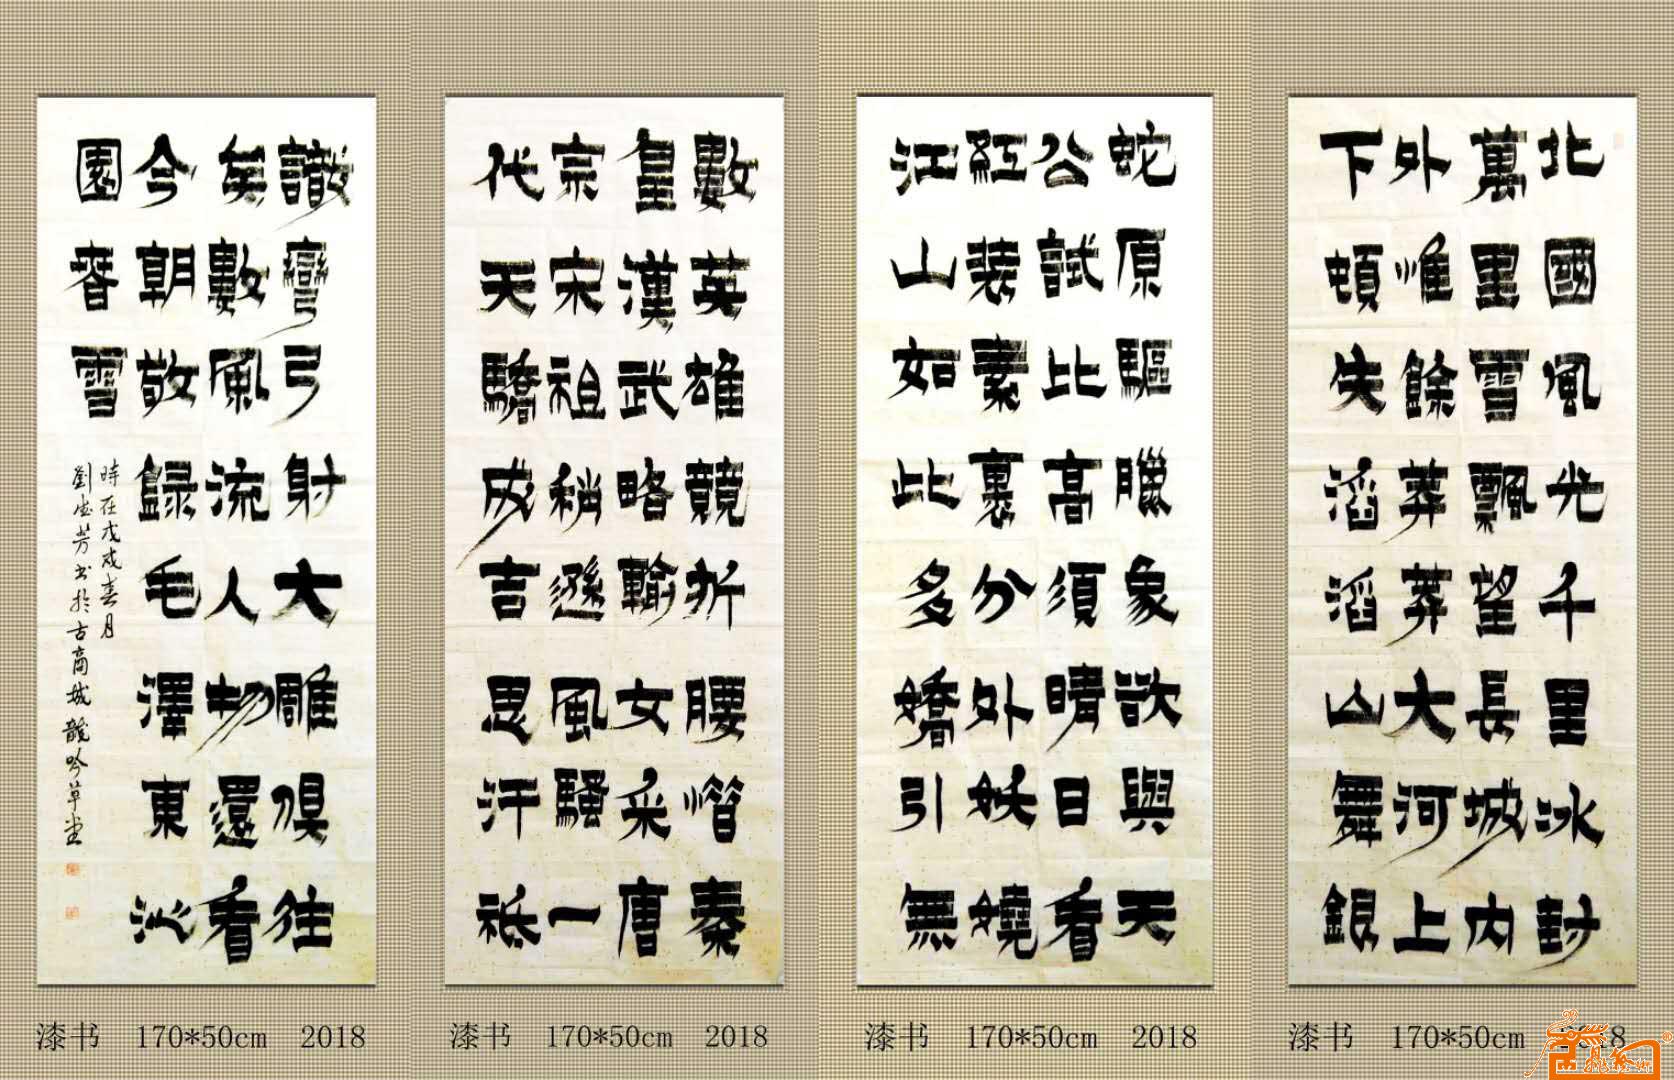 北國風光千里冰封
萬里雪飄望長城內
外惟餘莽莽大河上
下頓失滔滔山舞銀
蛇原驅臘象欲與天
公試比高須晴日看
紅裝素裹分外妖嬈
江山如此多嬌引無
數英雄競折腰惜秦
皇漢武略輸文采唐
宗宋祖稍遜風騷一
代天驕成吉思汗祗
識彎弓射大雕俱往
矣數風流人物還看
今朝敬錄毛澤東沁
園春雪
時在戊戌春月
劉芳书於古商城龍吟草堂
漆书 170*50cm 2018
漆书 170*50cm 2018
漆书 170*50cm 2018
漆书 170*50cm 2018